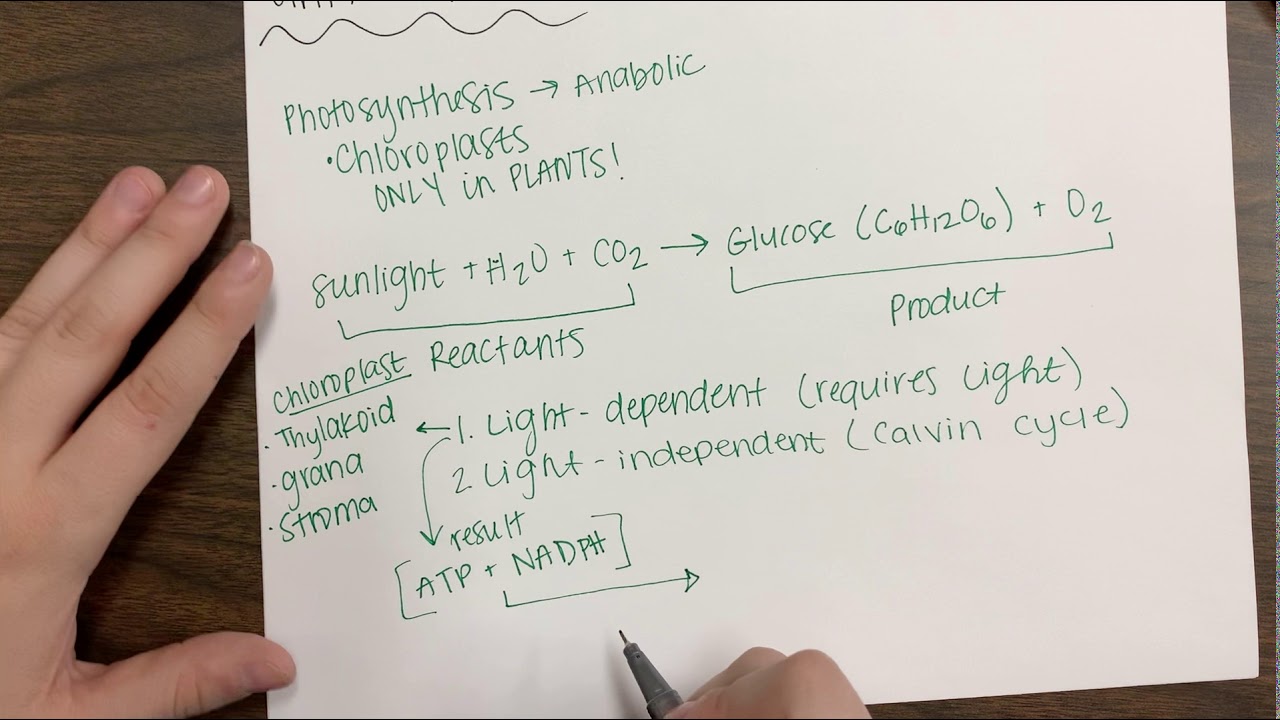 Photosynthesis → Anabolic
• Chloroplasts
ONLY in PLANTS!
sunlight + H2O + CO2 → Glucose (C6H12O6) + O2
Reactants
Product
Chloroplast
• Thylakoid
• grana
• stroma
← 1. Light-dependent (requires light)
2 Light-independent (Calvin cycle)
result
[ATP + NADPH]